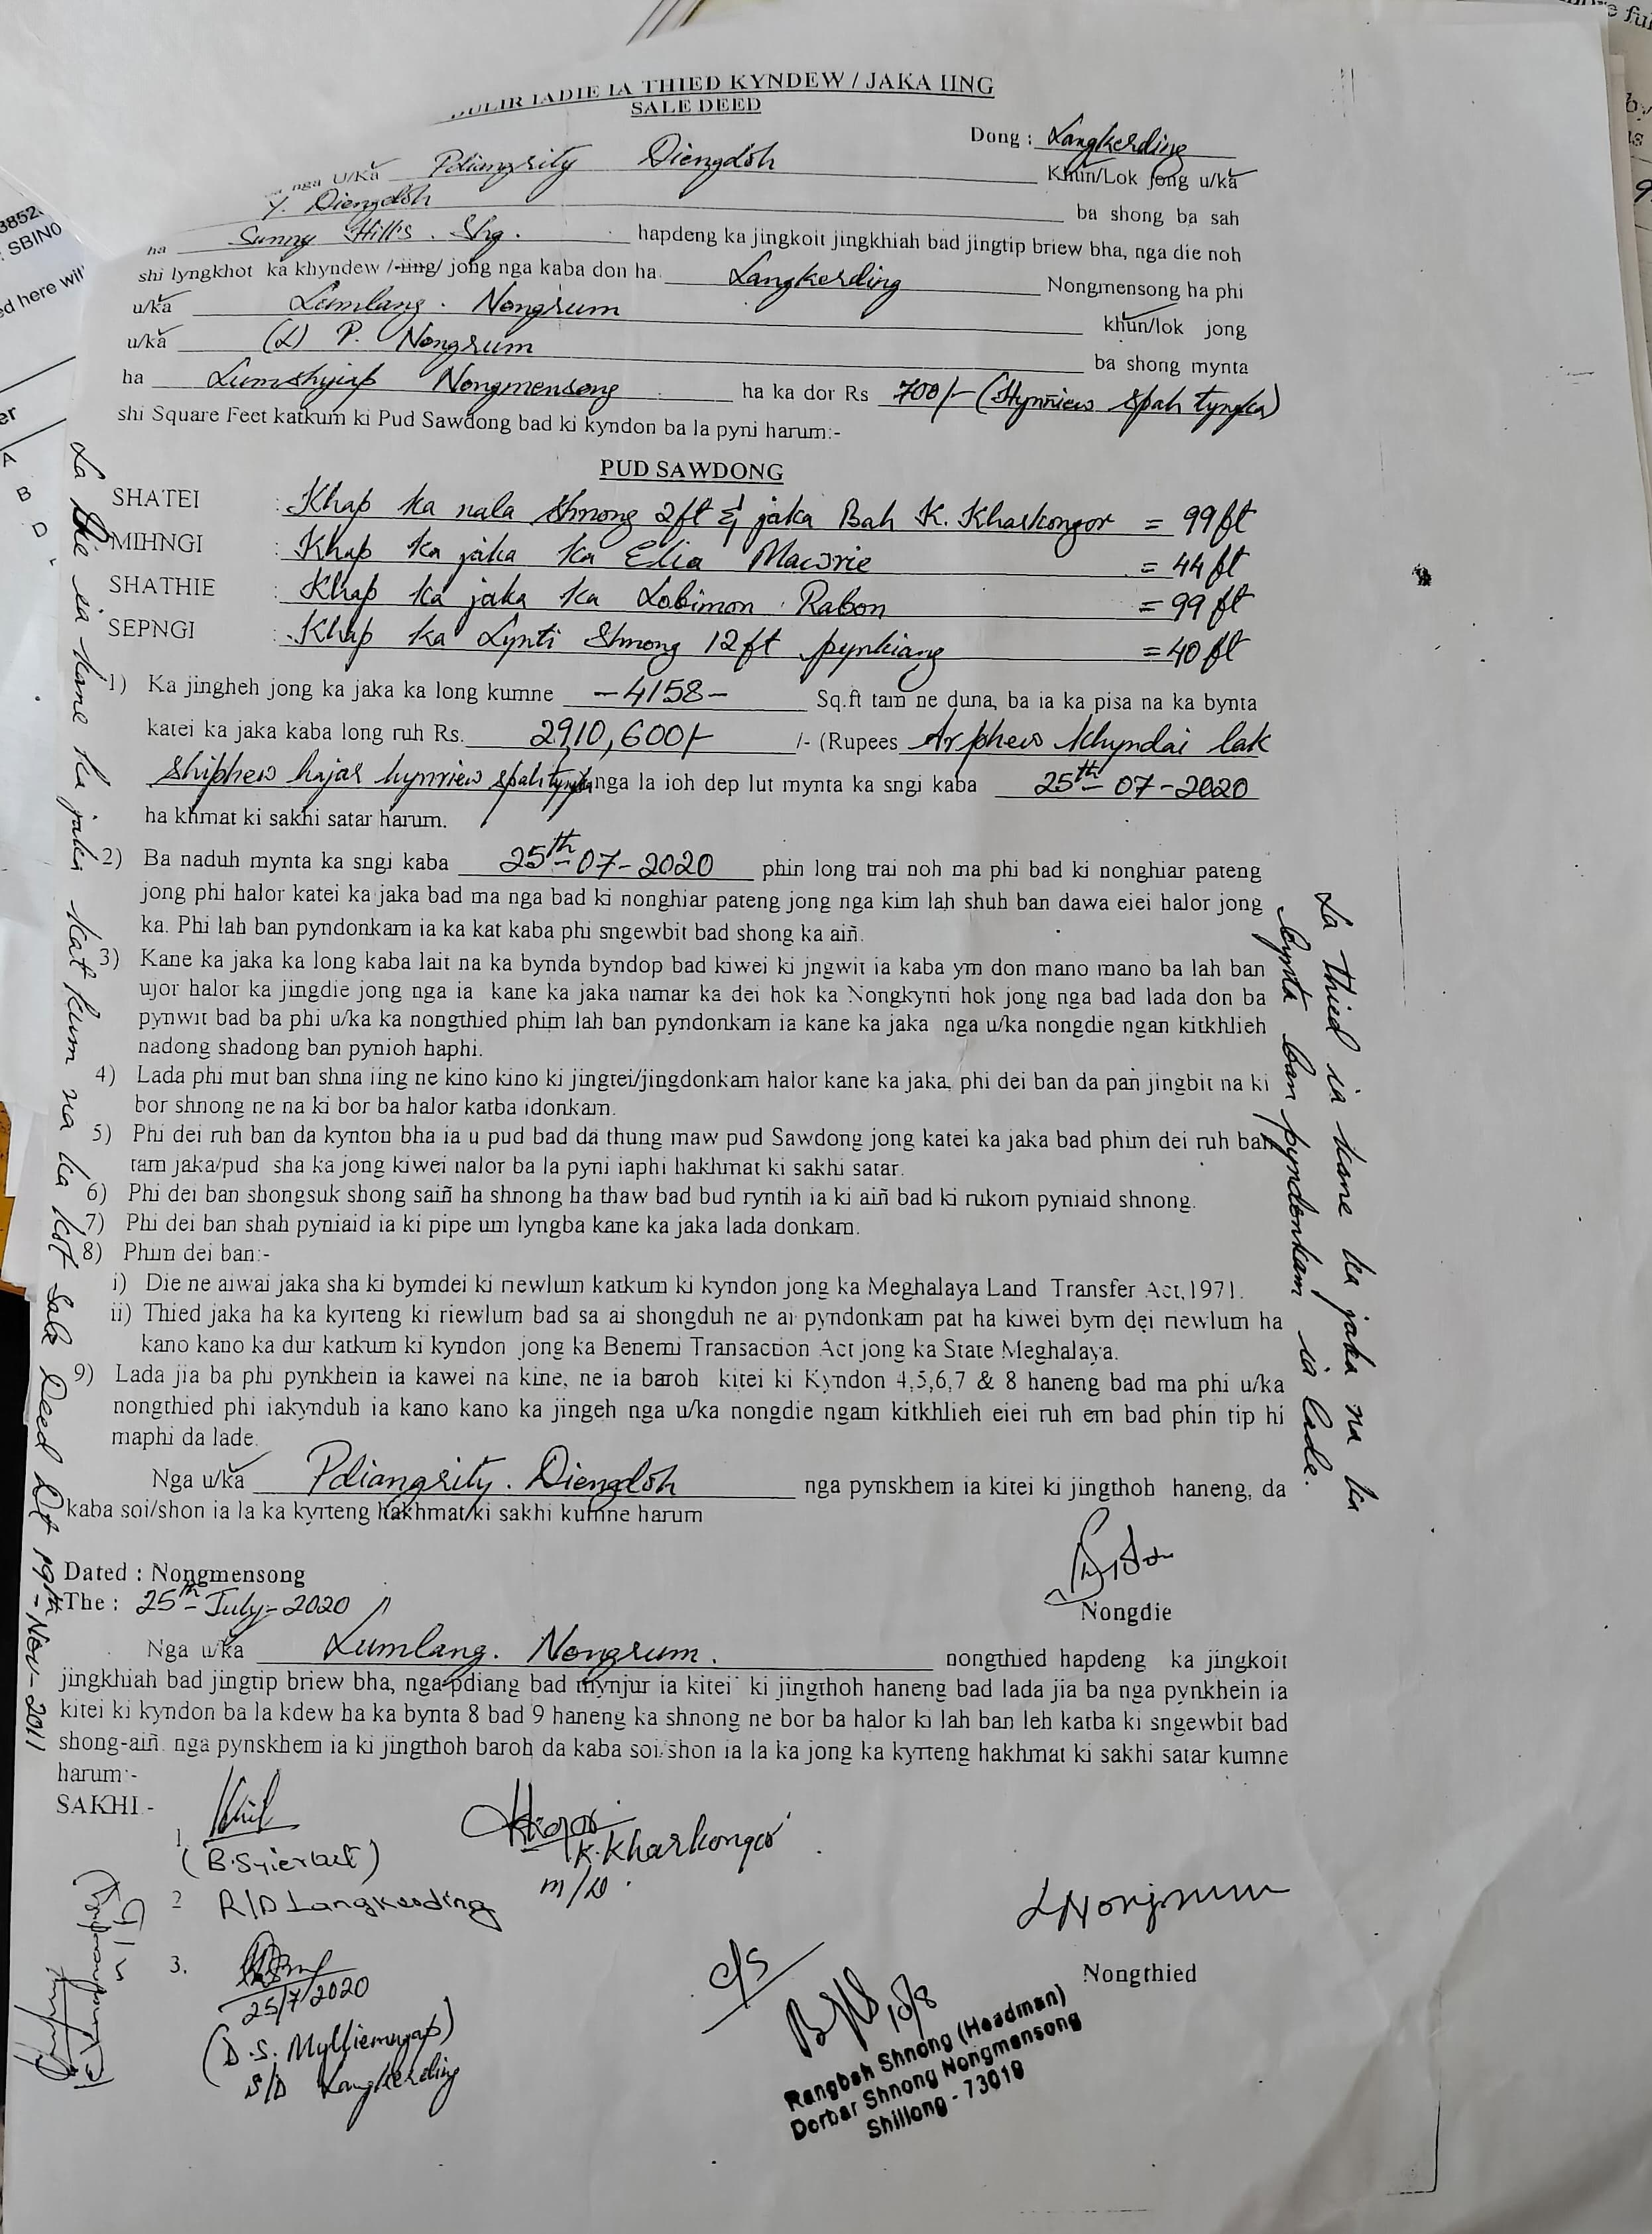 IADIE IA THIED KYNDEW / JAKA IING
SALE DEED
Dong : Langkerding
nga U/Ka Pdiangsity Diengdoh Khun/Lok jong u/ka
Y. Diengdoh ba shong ba sah
ha Sunny Hills. Shg. hapdeng ka jingkoit jingkhiah bad jingtip briew bha, nga die noh
shi lyngkhot ka khyndew /iing/ jong nga kaba don ha Langkerding Nongmensong ha phi
u/ka Lumlang. Nongrum khun/lok jong
u/ka (L) P. Nongrum ba shong mynta
ha Lumshyiap Nongmensong ha ka dor Rs 700/- (Hynñiew Spah tyngka)
shi Square Feet katkum ki Pud Sawdong bad ki kyndon ba la pyni harum:-
PUD SAWDONG
SHATEI : Khap ka nala Shnong 2ft & jaka Bah K. Kharkongor = 99 ft
MIHNGI : Khap ka jaka ka Elia Mawrie = 44 ft
SHATHIE : Khap ka jaka ka Lobimon Rabon = 99 ft
SEPNGI : Khap ka Lynti Shnong 12 ft pynkiang = 40 ft
1) Ka jingheh jong ka jaka ka long kumne -4158- Sq.ft tam ne duna, ba ia ka pisa na ka bynta
katei ka jaka kaba long ruh Rs. 2910,600/- /- (Rupees Arphew khyndai lak
shiphew hajar hynriew spah tyngka nga la ioh dep lut mynta ka sngi kaba 25th-07-2020
ha khmat ki sakhi satar harum.
2) Ba naduh mynta ka sngi kaba 25th-07-2020 phin long trai noh ma phi bad ki nonghiar pateng
jong phi halor katei ka jaka bad ma nga bad ki nonghiar pateng jong nga kim lah shuh ban dawa eiei halor jong
ka. Phi lah ban pyndonkam ia ka kat kaba phi sngewbit bad shong ka aiñ.
3) Kane ka jaka ka long kaba lait na ka bynda byndop bad kiwei ki jngwit ia kaba ym don mano mano ba lah ban
ujor halor ka jingdie jong nga ia kane ka jaka namar ka dei hok ka Nongkynti hok jong nga bad lada don ba
pynwit bad ba phi u/ka ka nongthied phim lah ban pyndonkam ia kane ka jaka nga u/ka nongdie ngan kitkhlieh
nadong shadong ban pynioh haphi.
4) Lada phi mut ban shna iing ne kino kino ki jingtei/jingdonkam halor kane ka jaka, phi dei ban da pan jingbit na ki
bor shnong ne na ki bor ba halor katba idonkam.
5) Phi dei ruh ban da kynton bha ia u pud bad da thung maw pud Sawdong jong katei ka jaka bad phim dei ruh ban
tam jaka/pud sha ka jong kiwei nalor ba la pyni iaphi hakhmat ki sakhi satar.
6) Phi dei ban shongsuk shong saiñ ha shnong ha thaw bad bud ryntih ia ki aiñ bad ki rukom pyniaid shnong.
7) Phi dei ban shah pyniaid ia ki pipe um lyngba kane ka jaka lada donkam.
8) Phim dei ban:-
i) Die ne aiwai jaka sha ki bymdei ki riewlum katkum ki kyndon jong ka Meghalaya Land Transfer Act,1971.
ii) Thied jaka ha ka kyrteng ki riewlum bad sa ai shongduh ne ai pyndonkam pat ha kiwei bym dei riewlum ha
kano kano ka dur katkum ki kyndon jong ka Benemi Transaction Act jong ka State Meghalaya.
9) Lada jia ba phi pynkhein ia kawei na kine, ne ia baroh kitei ki Kyndon 4,5,6,7 & 8 haneng bad ma phi u/ka
nongthied phi iakynduh ia kano kano ka jingeh nga u/ka nongdie ngam kitkhlieh eiei ruh em bad phin tip hi
maphi da lade.
Nga u/ka Pdiangsity. Diengdoh nga pynskhem ia kitei ki jingthoh haneng, da
kaba soi/shon ia la ka kyrteng hakhmat ki sakhi kumne harum
Dated : Nongmensong
The : 25th-July-2020
Nongdie
Nga u/ka Lumlang. Nongrum. nongthied hapdeng ka jingkoit
jingkhiah bad jingtip briew bha, nga pdiang bad mynjur ia kitei ki jingthoh haneng bad lada jia ba nga pynkhein ia
kitei ki kyndon ba la kdew ha ka bynta 8 bad 9 haneng ka shnong ne bor ba halor ki lah ban leh katba ki sngewbit bad
shong-aiñ. nga pynskhem ia ki jingthoh baroh da kaba soi/shon ia la ka jong ka kyrteng hakhmat ki sakhi satar kumne
harum:-
SAKHI -
1.
K. Kharkongor
m/D.
2 R/D Langkerding
LNongrum
Nongthied
3.
25/7/2020
(D.S. Mylliemngap)
S/D Langkerding
c/s
10/8
Rangbah Shnong (Headman)
Dorbar Shnong Nongmensong
Shillong - 73019
La Die ia kane ka jaka kat kum na ka kot Sale Deed Dt 19th-Nov-2011
La thied ia kane ka jaka na ka
bynta ban pyndonkam ia lade.
3852
: SBIN0
ed here wil
er
A
B
D
e ful